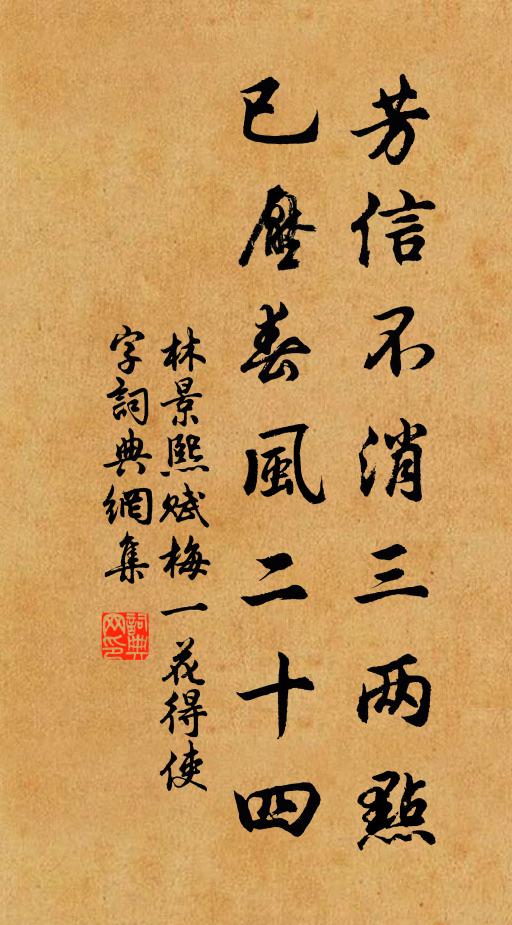 芳信不消三两點
已壓春風二十四
林景熙賦梅一花得使
字詞典網集
詞典网印